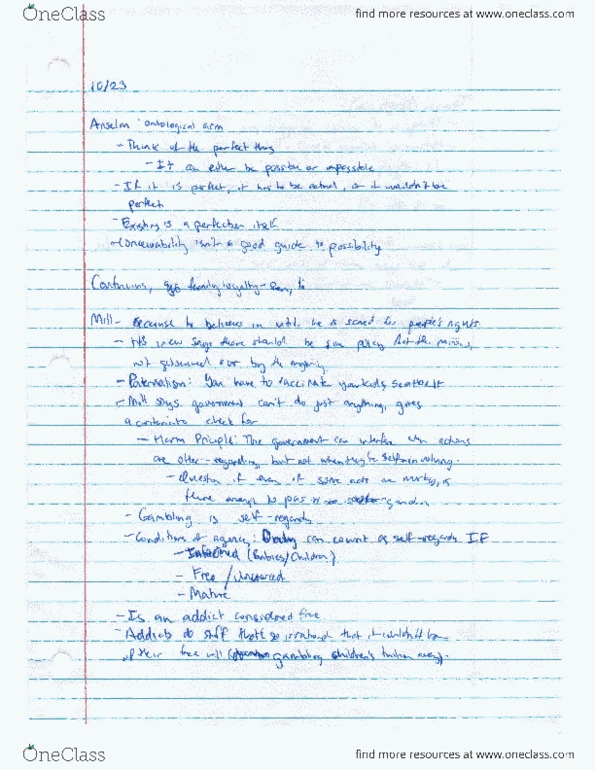 OneClass
find more resources at www.oneclass.com
10/23
Anselm ontological arm
- Think of the perfect thing
- It can either be possible or impossible
- If it is perfect, it has to be actual, or it wouldn't be
perfect
- Existing is a perfection itself
- Conceivability isn't a good guide to possibility
family loyalty
Mill - Because he believes in he is scared for people's rights
- His view says there should be policy
not
- Paternalism: You have to vaccinate your kids, seatbelt
- Mill says government can't do just anything, gives
a check for
- Harm Priciple: The government can interfere when actions
are other-regarding, but not when they're
- Question if even if some acts are
there enough to pass
- Gambling is self-regards
- Conditions of agency: can count as self-regards IF
- Informed (Babies/Children)
- Free /
- Mature
- Is an addict considered free
- Addicts do stuff that's so irrational that it wouldn't be
of their free will ( gambling children's tuition away).
OneClass
find more resources at www.oneclass.com